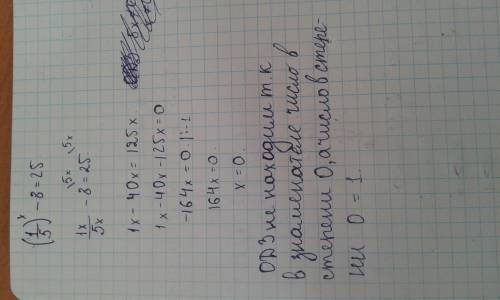 (1/5)^x - 8 = 25
1x/5x - 8 = 25 \5x \5x
1x - 40x = 125x
1x - 40x - 125x = 0
-164x = 0 |:-1
164x = 0
x = 0.
ОДЗ не находим т.к
в знаменателе число в
степени 0, а число в степе-
ни 0 = 1.